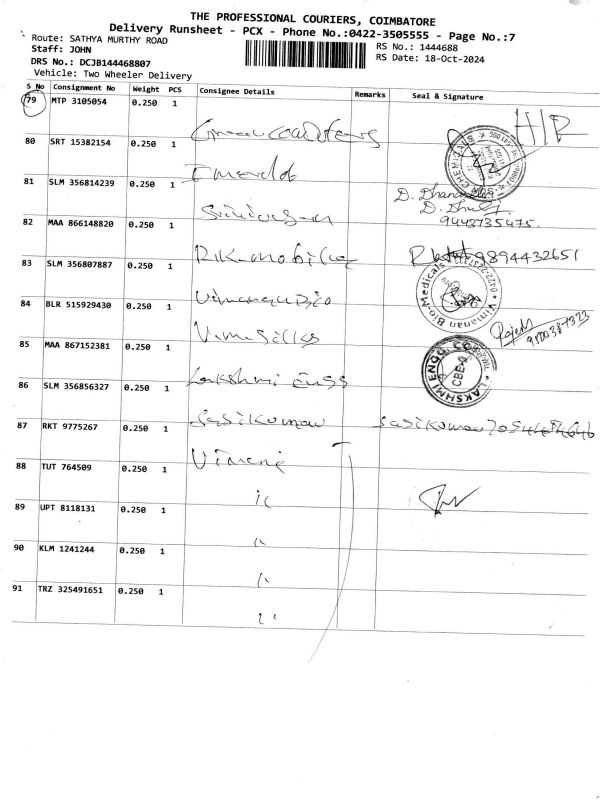 THE PROFESSIONAL COURIERS, COIMBATORE
Delivery Runsheet - PCX - Phone No.:0422-3505555 - Page No.:7
Route: SATHYA MURTHY ROAD
RS No.: 1444688
Staff: JOHN
RS Date: 18-Oct-2024
DRS No.: DCJB144468807
Vehicle: Two Wheeler Delivery
S No Consignment No Weight PCS Consignee Details Remarks Seal & Signature
79 MTP 3105054 0.250 1
80 SRT 15382154 0.250 1
Emerald
81 SLM 356814239 0.250 1
Srinivasan
D. Dhana
9443735475.
82 MAA 866148820 0.250 1
R.K. mobiles
9894432651
83 SLM 356807887 0.250 1
Vimanan Bio
Vimanan Bio Medicals
84 BLR 515929430 0.250 1
V.M. Silks
Rajesh
85 MAA 867152381 0.250 1
Lakshmi Engg
LAKSHMI ENGG CO
CBE-4
86 SLM 356856327 0.250 1
Sasikumar
Sasikumar
87 RKT 9775267 0.250 1
88 TUT 764509 0.250 1
"
89 UPT 8118131 0.250 1
"
90 KLM 1241244 0.250 1
"
91 TRZ 325491651 0.250 1
"